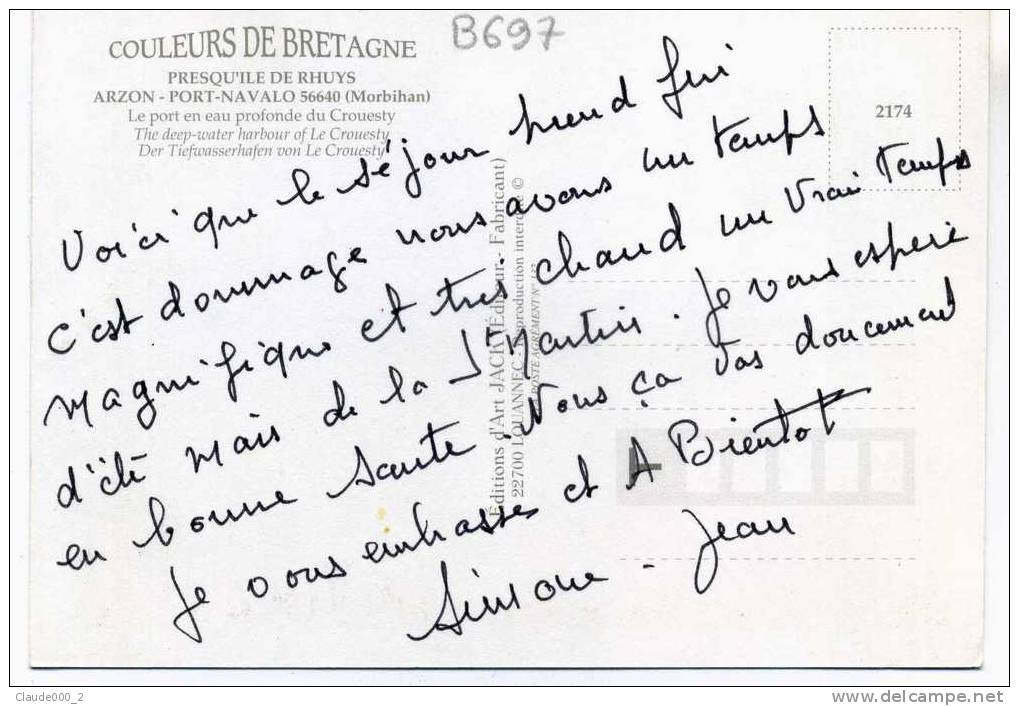 B697
COULEURS DE BRETAGNE
PRESQU'ILE DE RHUYS
ARZON - PORT-NAVALO 56640 (Morbihan)
Le port en eau profonde du Crouesty
The deep-water harbour of Le Crouesty
Der Tiefwasserhafen von Le Crouesty
2174
Voici que le séjour prend fin
c'est dommage nous avons un temps
magnifique et très chaud un vrai temps
d'été mais de la St Martin. Je vous espère
en bonne santé. Nous ça vas doucement
Je vous embrasse et A Bientot
Simone - Jean
Editions d'Art JACK (Éditeur - Fabricant)
22700 LOUANNEC - Reproduction interdite ©
POSTE AGREMENT N°
Claude000_2
delcampe.net